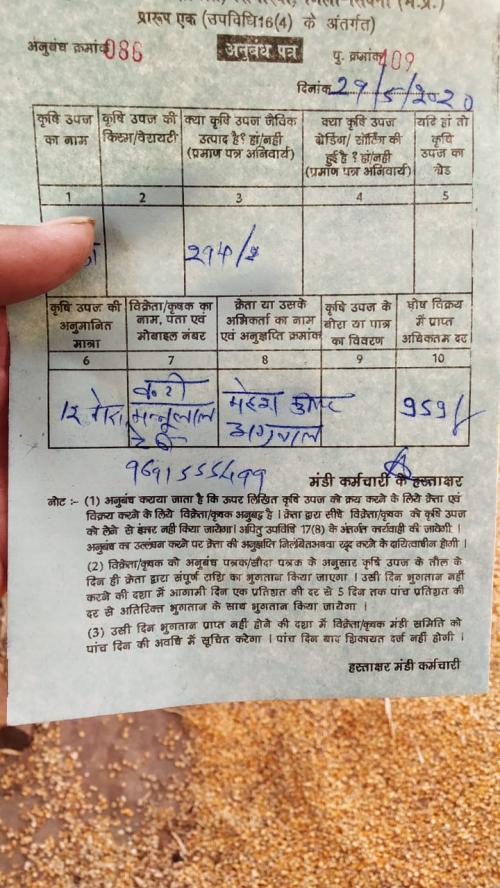 प्रारूप एक (उपविधि16(4) के अंतर्गत)
अनुबंध क्रमांक 086 अनुबंध पत्र पु. क्रमांक 409
दिनांक 29/5/2020
कृषि उपज का नाम कृषि उपज की किस्म/वेरायटी क्या कृषि उपज जैविक उत्पाद है? हां/नही (प्रमाण पत्र अनिवार्य) क्या कृषि उपज ग्रेडिंग/ सॉर्टिंग की हुई है? हां/नही (प्रमाण पत्र अनिवार्य) यदि हां तो कृषि उपज का ग्रेड
1 2 3 4 5
कृषि उपज की अनुमानित मात्रा विक्रेता/कृषक का नाम, पता एवं मोबाइल नंबर क्रेता या उसके अभिकर्ता का नाम एवं अनुज्ञप्ति क्रमांक कृषि उपज के बोरा या पात्र का विवरण घोष विक्रय में प्राप्त अधिकतम दर
6 7 8 9 10
मन्नुलाल
अग्रवाल
959/
मंडी कर्मचारी के हस्ताक्षर
नोट :- (1) अनुबंध कराया जाता है कि ऊपर लिखित कृषि उपज को क्रय करने के लिये क्रेता एवं
विक्रय करने के लिये विक्रेता/कृषक अनुबद्ध है । क्रेता द्वारा सीधे विक्रेता/कृषक की कृषि उपज
को लेने से इंकार नही किया जायेगा। अपितु उपविधि 17(8) के अंतर्गत कार्यवाही की जायेगी ।
अनुबंध का उल्लंघन करने पर क्रेता की अनुज्ञप्ति निलंबित अथवा रद्द करने के दायित्वाधीन होगी ।
(2) विक्रेता/कृषक को अनुबंध पत्रक/सौदा पत्रक के अनुसार कृषि उपज के तौल के
दिन ही क्रेता द्वारा संपूर्ण राशि का भुगतान किया जाएगा । उसी दिन भुगतान नहीं
करने की दशा में आगामी दिन एक प्रतिशत की दर से 5 दिन तक पांच प्रतिशत की
दर से अतिरिक्त भुगतान के साथ भुगतान किया जायेगा ।
(3) उसी दिन भुगतान प्राप्त नहीं होने की दशा में विक्रेता/कृषक मंडी समिति को
पांच दिन की अवधि में सूचित करेगा । पांच दिन बाद शिकायत दर्ज नहीं होगी ।
हस्ताक्षर मंडी कर्मचारी